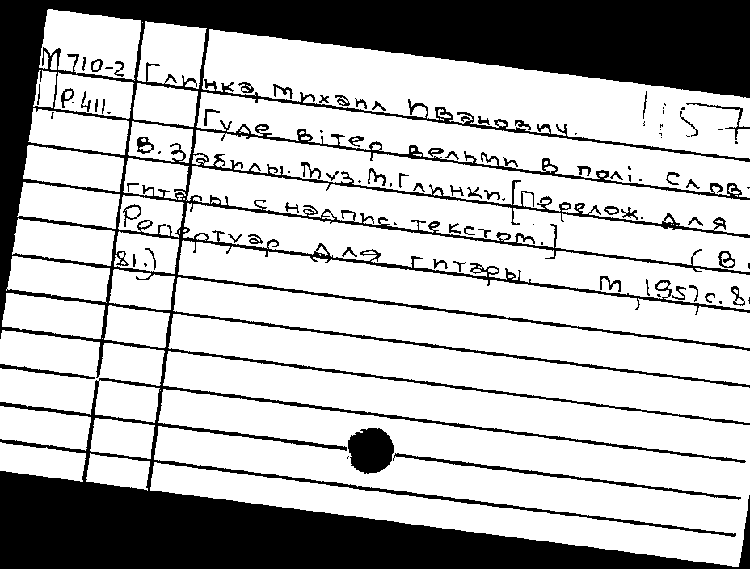 М 710-2 Глинка, Михаил Иванович. 1157
Р.411. Гуде вітер вельми в полі. Слов
В. Забилы. Муз. М. Глинки. [Перелож. для
гитары с надпис. текстом.] (В
Репертуар для гитары. М., 1957, с. 8
81.)